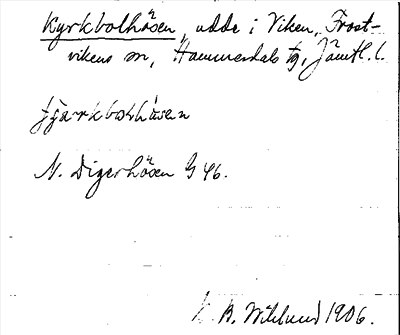 Kyrkbolhösen, udde i Viken, Frost-
vikens sn, Hammerdals tg, Jämtl. l.
N. Digerhösen G 46.
K. B. Wiklund 1906.